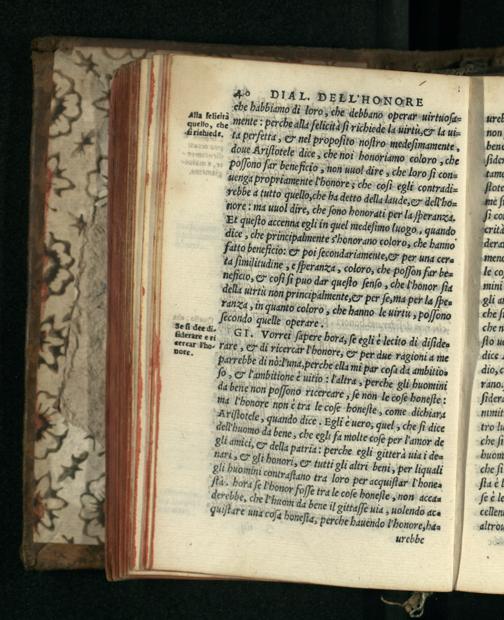 40 DIAL. DELL'HONORE
che habbiamo di loro, che debbano operar uirtuosa=
Alla felicità
quello, che
si richiede.
mente: perche alla felicità si richiede la uirtù, & la ui=
ta perfetta, & nel proposito nostro medesimamente,
doue Aristotele dice, che noi honoriamo coloro, che
possono far beneficio, non uuol dire, che loro si con=
uenga propriamente l'honore; che così egli contradi=
rebbe a tutto quello, che ha detto della laude, & dell'ho=
nore: ma uuol dire, che sono honorati per la speranza.
Et questo accenna egli in quel medesimo luogo, quando
dice, che principalmente s'honorano coloro, che hanno
fatto beneficio: & poi secondariamente, & per una cer=
ta similitudine, e speranza, coloro, che posson far be=
neficio, & così si puo dar questo senso, che l'honor sia
della uirtù non principalmente, & per se, ma per la spe=
ranza, in quanto coloro, che hanno le uirtu, possono
secondo quelle operare.
Se si dee di=
siderare e ri
cercar l'ho=
nore.
GI. Vorrei sapere hora, se egli è lecito di diside=
rare, & di ricercar l'honore, & per due ragioni a me
parrebbe di nò: l'una, perche ella mi par cosa da ambitio=
so, & l'ambitione è uitio: l'altra, perche gli huomini
da bene non possono ricercare, se non le cose honeste:
ma l'honore non è tra le cose honeste, come dichiara
Aristotele, quando dice. Egli è uero, quel, che si dice
dell'huomo da bene, che egli fa molte cose per l'amor de
gli amici, & della patria: perche egli gitterà uia i de=
nari, & gli honori, & tutti gli altri beni, per liquali
gli huomini contrastano tra loro per acquistar l'hone=
sta. hora se l'honor fosse tra le cose honeste, non acca=
derebbe, che l'huom da bene il gittasse uia, uolendo ac=
quistare una cosa honesta, perche hauendo l'honore, ha=
urebbe